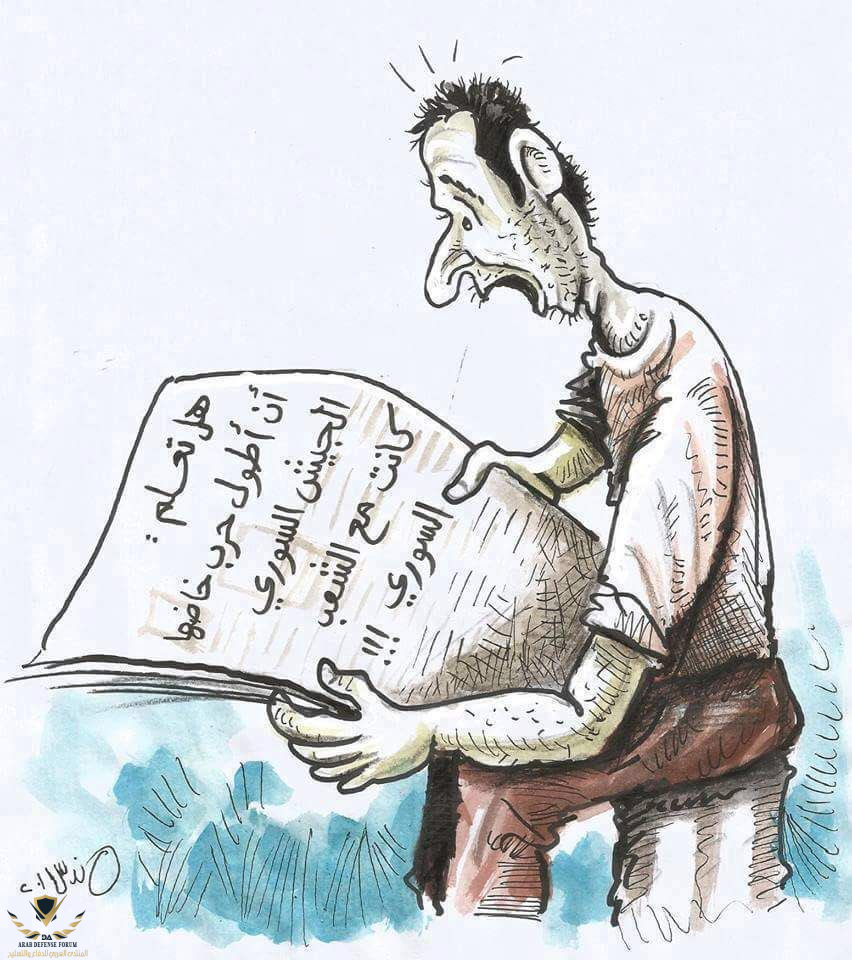 هل تعلم :
أن أطول حرب خاضها
الجيش السوري
كانت مع الشعب
السوري !!!
ARAB DEFENSE FORUM
المنتدى العربي للدفاع والتسليح